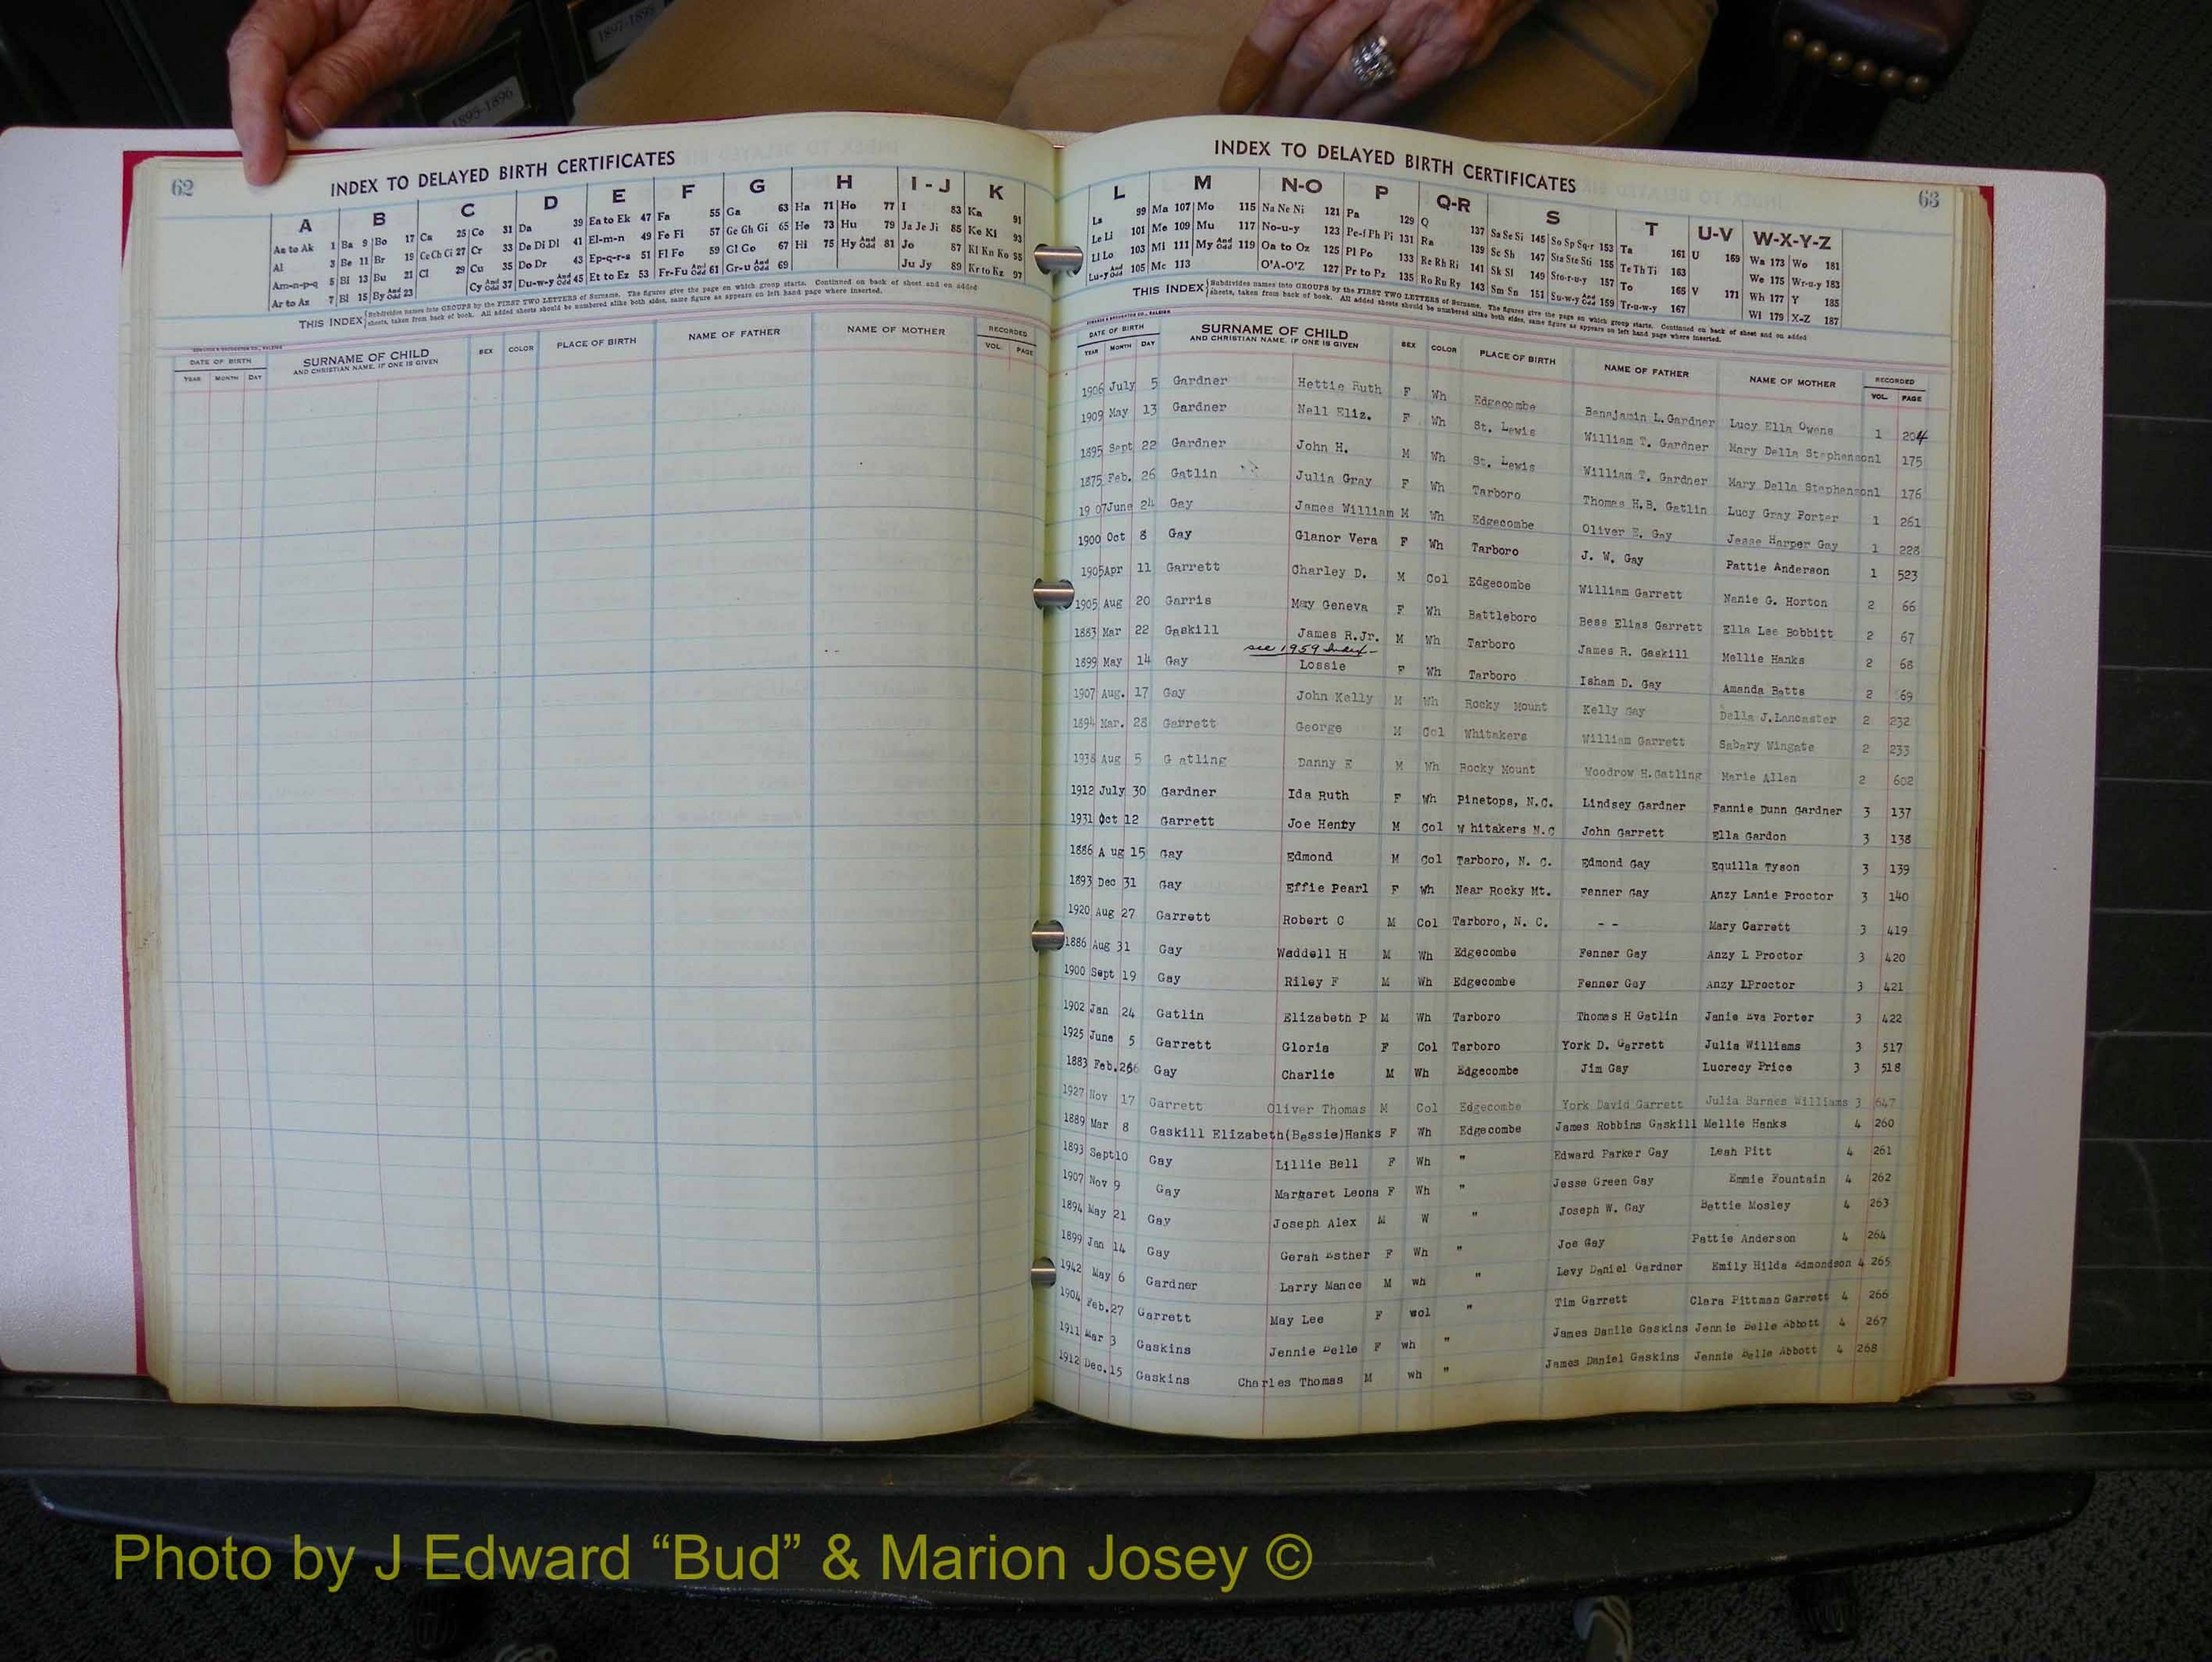 1897-1898
1895-1896
62
INDEX TO DELAYED BIRTH CERTIFICATES
A B C D E F G H I - J K
Aa to Ak 1 Ba 9 Bo 17 Ca 25 Co 31 Da 39 Ea to Ek 47 Fa 55 Ga 63 Ha 71 Ho 77 I 83 Ka 91
Al 3 Be 11 Br 19 Ce Ch Ci 27 Cr 33 De Di Dl 41 El-m-n 49 Fe Fi 57 Ge Gh Gi 65 He 73 Hu 79 Ja Je Ji 85 Ke Kl 93
Am-n-p-q 5 Bl 13 Bu 21 Cl 29 Cu 35 Do Dr 43 Ep-q-r-s 51 Fl Fo 59 Gl Go 67 Hi 75 Hy And Odd 81 Jo 87 Kl Kn Ko 95
Ar to Az 7 Bl 15 By And Odd 23 Cy And Odd 37 Du-w-y And Odd 45 Et to Ez 53 Fr-Fu And Odd 61 Gr-u And Odd 69 Ju Jy 89 Kr to Kz 97
THIS INDEX Subdivides names into GROUPS by the FIRST TWO LETTERS of Surname. The figures give the page on which group starts. Continued on back of sheet and on added
sheets, taken from back of book. All added sheets should be numbered alike both sides, same figure as appears on left hand page where inserted.
DATE OF BIRTH SURNAME OF CHILD SEX COLOR PLACE OF BIRTH NAME OF FATHER NAME OF MOTHER RECORDED
YEAR MONTH DAY AND CHRISTIAN NAME, IF ONE IS GIVEN VOL. PAGE
INDEX TO DELAYED BIRTH CERTIFICATES
63
L M N-O P Q-R S T U-V W-X-Y-Z
La 99 Ma 107 Mo 115 Na Ne Ni 121 Pa 129 Q 137 Sa Se Si 145 So Sp Sq-r 153 Ta 161 U 169 Wa 173 Wo 181
Le Li 101 Me 109 Mu 117 No-u-y 123 Pe-f Ph Pi 131 Ra 139 Sc Sh 147 Sta Ste Sti 155 Te Th Ti 163 We 175 Wr-u-y 183
Ll Lo 103 Mi 111 My And Odd 119 Oa to Oz 125 Pl Po 133 Re Rh Ri 141 Sk Sl 149 Sto-r-u-y 157 To 165 V 171 Wh 177 Y 185
Lu-y And Odd 105 Mc 113 O'A-O'Z 127 Pr to Pz 135 Ro Ru Ry 143 Sm Sn 151 Su-w-y And Odd 159 Tr-u-w-y 167 Wi 179 X-Z 187
THIS INDEX Subdivides names into GROUPS by the FIRST TWO LETTERS of Surname. The figures give the page on which group starts. Continued on back of sheet and on added
sheets, taken from back of book. All added sheets should be numbered alike both sides, same figure as appears on left hand page where inserted.
DATE OF BIRTH SURNAME OF CHILD SEX COLOR PLACE OF BIRTH NAME OF FATHER NAME OF MOTHER RECORDED
YEAR MONTH DAY AND CHRISTIAN NAME, IF ONE IS GIVEN VOL. PAGE
1906 July 5 Gardner Hettie Ruth F Wh Edgecombe Benajamin L. Gardner Lucy Ella Owens 1 204
1909 May 13 Gardner Nell Eliz. F Wh St. Lewis William T. Gardner Mary Della Stephenson1 175
1895 Sept 22 Gardner John H. M Wh St. Lewis William T. Gardner Mary Della Stephenson1 176
1875 Feb. 26 Gatlin Julia Gray F Wh Tarboro Thomas H.B. Gatlin Lucy Gray Porter 1 261
19 07June 24 Gay James William M Wh Edgecombe Oliver E. Gay Jesse Harper Gay 1 228
1900 Oct 8 Gay Glanor Vera F Wh Tarboro J. W. Gay Pattie Anderson 1 523
1905Apr 11 Garrett Charley D. M Col Edgecombe William Garrett Nanie G. Horton 2 66
1905 Aug 20 Garris May Geneva F Wh Battleboro Bess Elias Garrett Ella Lee Bobbitt 2 67
1883 Mar 22 Gaskill James R.Jr. M Wh Tarboro James R. Gaskill Mellie Hanks 2 68
see 1959 Index
1899 May 14 Gay Lossie F Wh Tarboro Isham D. Gay Amanda Batts 2 69
1907 Aug. 17 Gay John Kelly M Wh Rocky Mount Kelly Gay Della J.Lancaster 2 232
1894 Mar. 28 Garrett George M Col Whitakers William Garrett Sabary Wingate 2 233
1938 Aug 5 G atling Danny E M Wh Rocky Mount Woodrow H.Gatling Marie Allen 2 602
1912 July 30 Gardner Ida Ruth F Wh Pinetops, N.C. Lindsey Gardner Fannie Dunn Gardner 3 137
1931 Oct 12 Garrett Joe Henry M Col W hitakers N.C John Garrett Ella Gardon 3 138
1886 A ug 15 Gay Edmond M Col Tarboro, N. C. Edmond Gay Equilla Tyson 3 139
1893 Dec 31 Gay Effie Pearl F Wh Near Rocky Mt. Fenner Gay Anzy Lanie Proctor 3 140
1920 Aug 27 Garrett Robert C M Col Tarboro, N. C. - - Mary Garrett 3 419
1886 Aug 31 Gay Waddell H M Wh Edgecombe Fenner Gay Anzy L Proctor 3 420
1900 Sept 19 Gay Riley F M Wh Edgecombe Fenner Gay Anzy LProctor 3 421
1902 Jan 24 Gatlin Elizabeth P M Wh Tarboro Thomas H Gatlin Janie Eva Porter 3 422
1925 June 5 Garrett Gloria F Col Tarboro York D. Garrett Julia Williams 3 517
1883 Feb. Gay Charlie M Wh Edgecombe Jim Gay Lucrecy Price 3 518
1927 Nov 17 Garrett Oliver Thomas M Col Edgecombe York David Garrett Julia Barnes Williams 3 647
1889 Mar 8 Gaskill Elizabeth(Bessie)Hanks F Wh Edgecombe James Robbins Gaskill Mellie Hanks 4 260
1893 Sept10 Gay Lillie Bell F Wh " Edward Parker Gay Leah Pitt 4 261
1907 Nov 9 Gay Margaret Leona F Wh " Jesse Green Gay Emmie Fountain 4 262
1894 May 21 Gay Joseph Alex M W " Joseph W. Gay Bettie Mosley 4 263
1899 Jan 14 Gay Gerah Esther F Wh " Joe Gay Pattie Anderson 4 264
1942 May 6 Gardner Larry Mance M wh " Levy Daniel Gardner Emily Hilda Edmondson 4 265
1904 Feb.27 Garrett May Lee F wol " Tim Garrett Clara Pittman Garrett 4 266
1911 Mar 3 Gaskins Jennie Belle F wh " James Danile Gaskins Jennie Belle Abbott 4 267
1912 Dec.15 Gaskins Charles Thomas M wh " James Daniel Gaskins Jennie Belle Abbott 4 268
Photo by J Edward “Bud” & Marion Josey ©